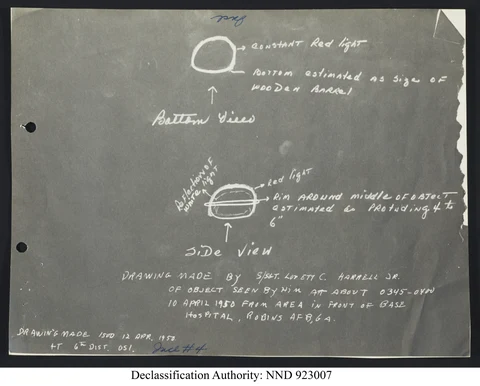 CONSTANT Red light
BOTTOM estimated AS size of
WOODEN BARREL
Bottom View
Reflection OF
white light
Red light
Rim AROUND middle OF OBJECT
estimated & PROTUDING 4 to
6"
SIDE VIEW
DRAWING MADE By S/SGT. C. HARRELL JR.
OF OBJECT SEEN By HIM AT ABOUT 0345-0400
10 APRIL 1950 FROM AREA IN FRONT OF BASE
HOSPITAL, ROBINS AFB, GA.
DRAWING MADE 1500 12 APR. 1950
AT 6th DIST. OSI.
#4
Declassification Authority: NND 923007